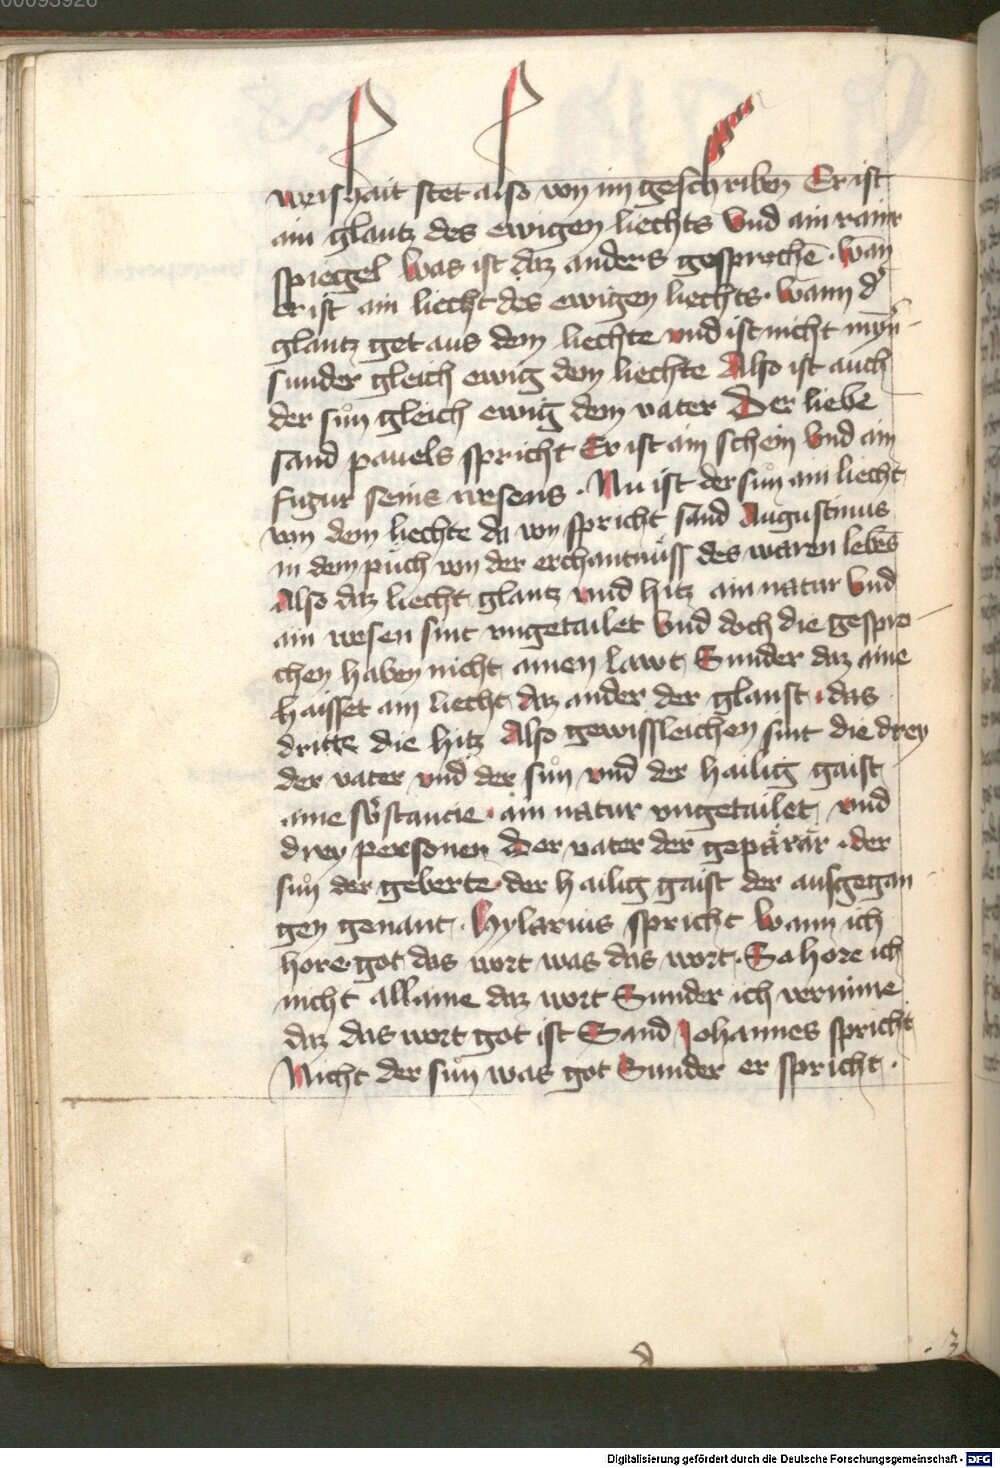 00093926
weishait stet also von im geschriben Er ist
ain glantz des ewigen liechts Vnd ain rainer
spiegel Was ist daz anders gesprochē · wan
er ist ain liecht des ewigen liechts · wann d᷑
glantz get aus dem liechte vnd ist nicht myn̄
sunder gleich ewig dem liechte Also ist auch
der sůn gleich ewig dem vater Der liebe
sand pauels spricht Er ist ain schein Vnd ain
figur seins wesens · Nu ist der sůn ain liecht
von dem liechte da von spricht sand Augustinus
in dem půch von der erchantnůss des waren lebēs
Also daz liecht glantz vnd hitz ain natur Vnd
ain wesen sint vngetailet Vnd doch die gespro
chen haben nicht ainen lawt Sunder daz aine
haisset ain liecht daz ander der glanst · das
dritte die hitz Also gewissleichen sint die drey
der vater vnd der sůn vnd der hailig gaist
aine substancie · ain natur vngetailet vnd
drey personen Der vater der gepärär · der
sůn der geberte · der hailig gaist der aufgegan
gen genant · Hylarius spricht Wann ich
hore · got das wort was das wort · So hore ich
nicht allaine daz wort Sunder ich vernime
daz das wort got ist Sand Johannes spricht
Nicht der sůn was got Sunder er spricht ·
Digitalisierung gefördert durch die Deutsche Forschungsgemeinschaft - DFG